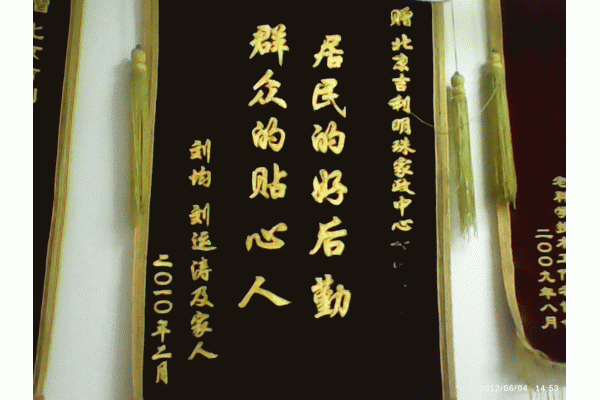 赠北京吉利明珠家政中心
居民的好后勤
群众的贴心人
刘均 刘运涛及家人
二〇一〇年二月
二〇〇九年八月
2012/06/04 14:53